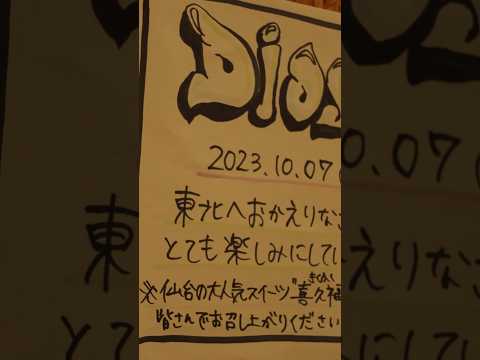 Dios
2023.10.07(
東北へおかえりなさ
とても楽しみにしてい
※仙台の大人気スイーツ"喜久福
きくふく
皆さんでお召し上がりください